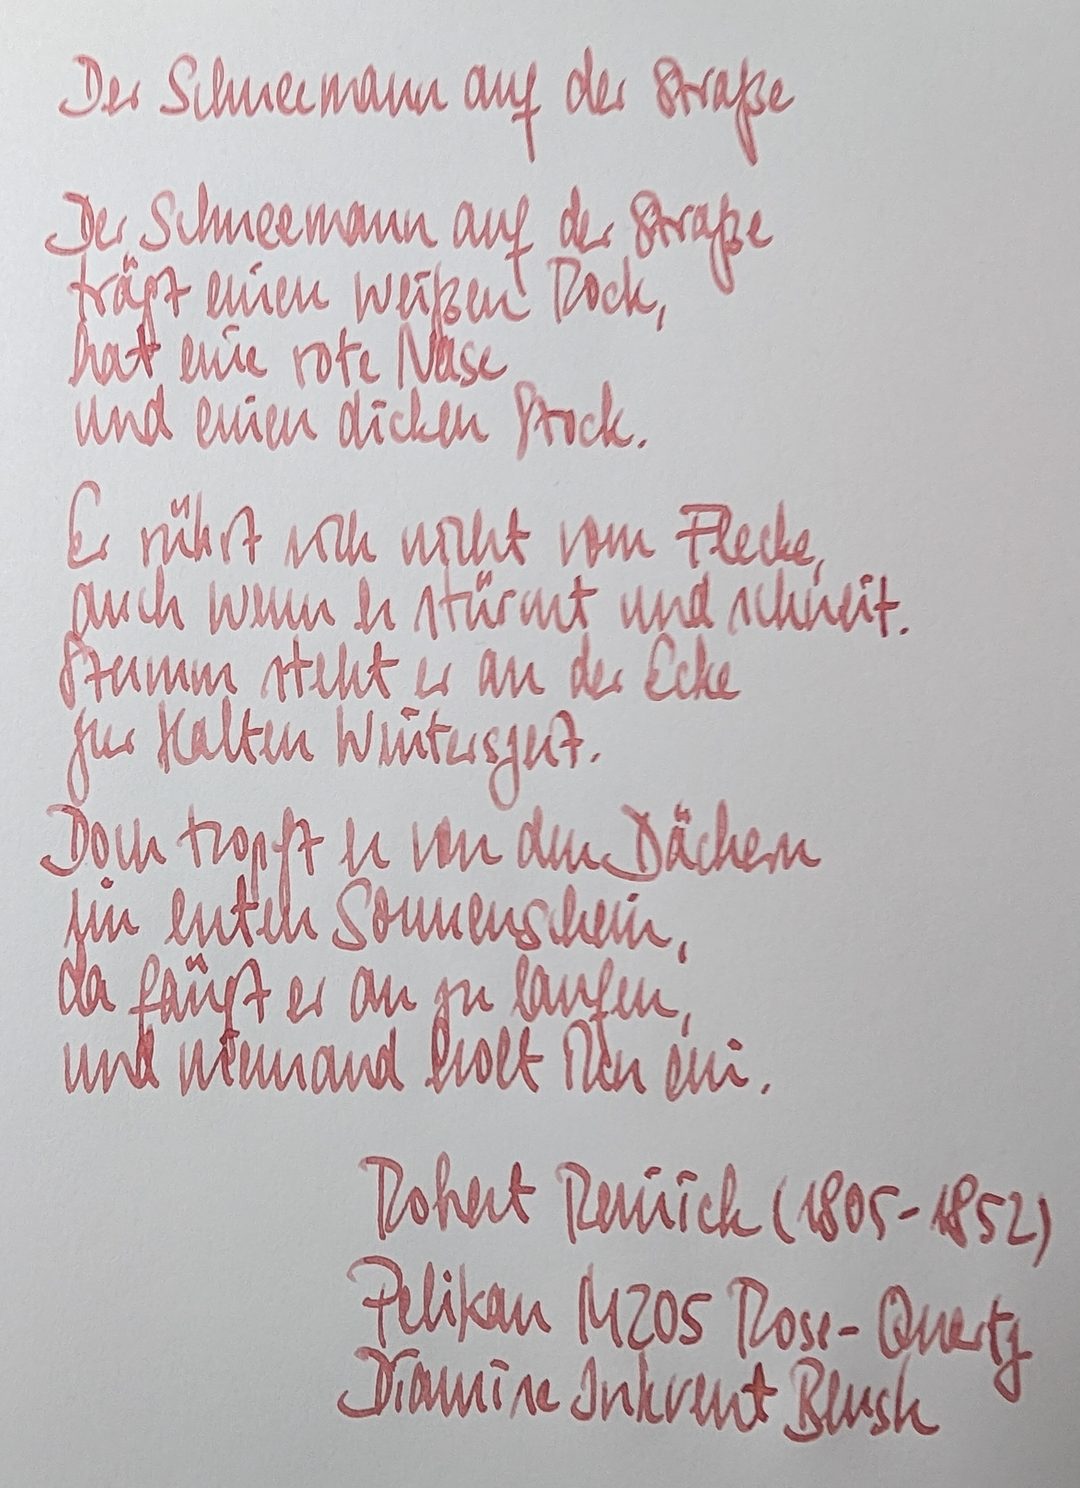 Der Schneemann auf der Straße
Der Schneemann auf der Straße
trägt einen weißen Rock,
hat eine rote Nase
und einen dicken Stock.
Er rührt sich nicht vom Flecke,
auch wenn es stürmt und schneit.
Stumm steht er an der Ecke
zur kalten Winterszeit.
Doch tropft es von den Dächern
im ersten Sonnenschein,
da fängt er an zu laufen,
und niemand holt ihn ein.
Robert Reinick (1805-1852)
Pelikan M205 Rose-Quartz
Diamine Inkvent Blush